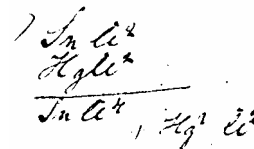 ) Sn Cl²
HgCl²
Sn Cl⁴, Hg² Cl²